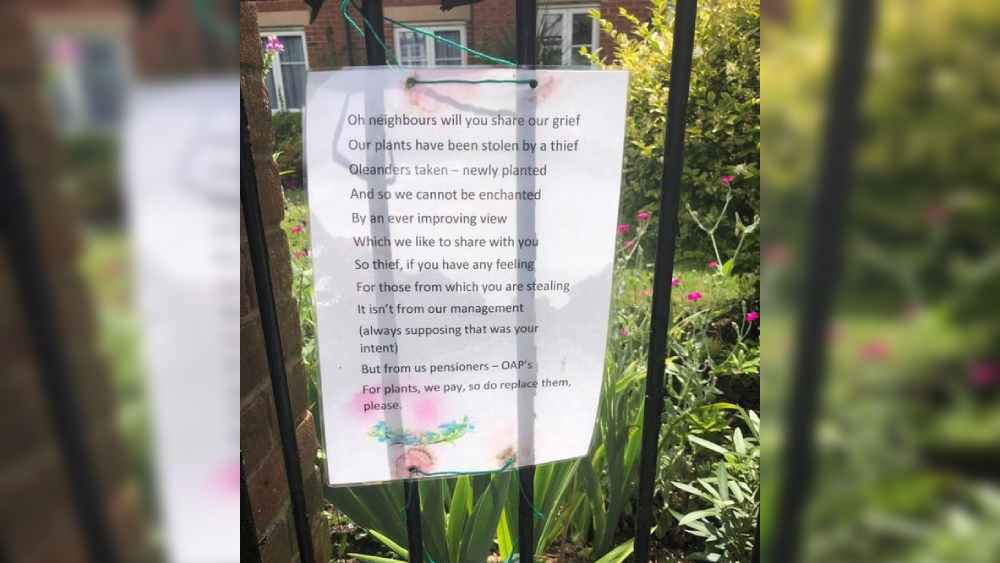 Oh neighbours will you share our grief
Our plants have been stolen by a thief
Oleanders taken – newly planted
And so we cannot be enchanted
By an ever improving view
Which we like to share with you
So thief, if you have any feeling
For those from which you are stealing
It isn't from our management
(always supposing that was your
intent)
But from us pensioners – OAP's
For plants, we pay, so do replace them,
please.